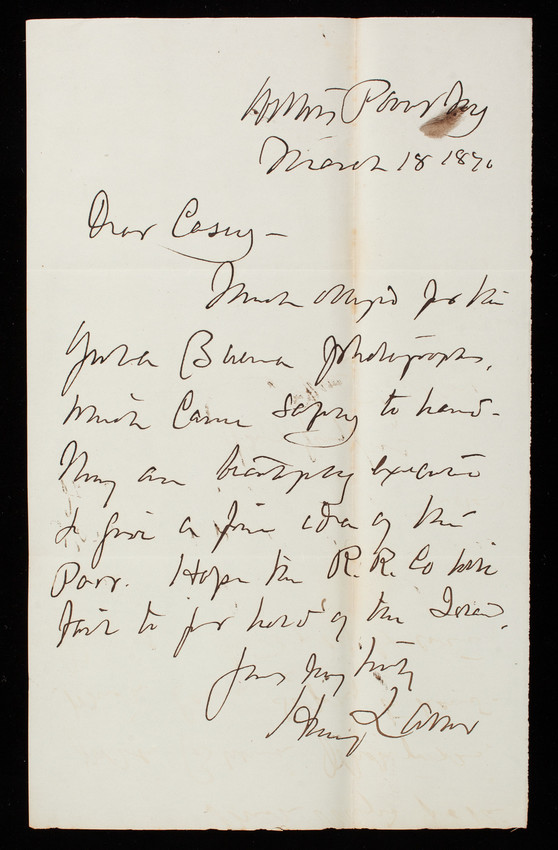 March 18 1870
Dear Casey -
Much oblig'd for the
Yerba Buena photographs,
which came safely to hand -
They are beautifully executed
& give a fine idea of the
Hope the R. R. Co will
fail to get hold of the Island,
Yours very truly
Henry L Abbot